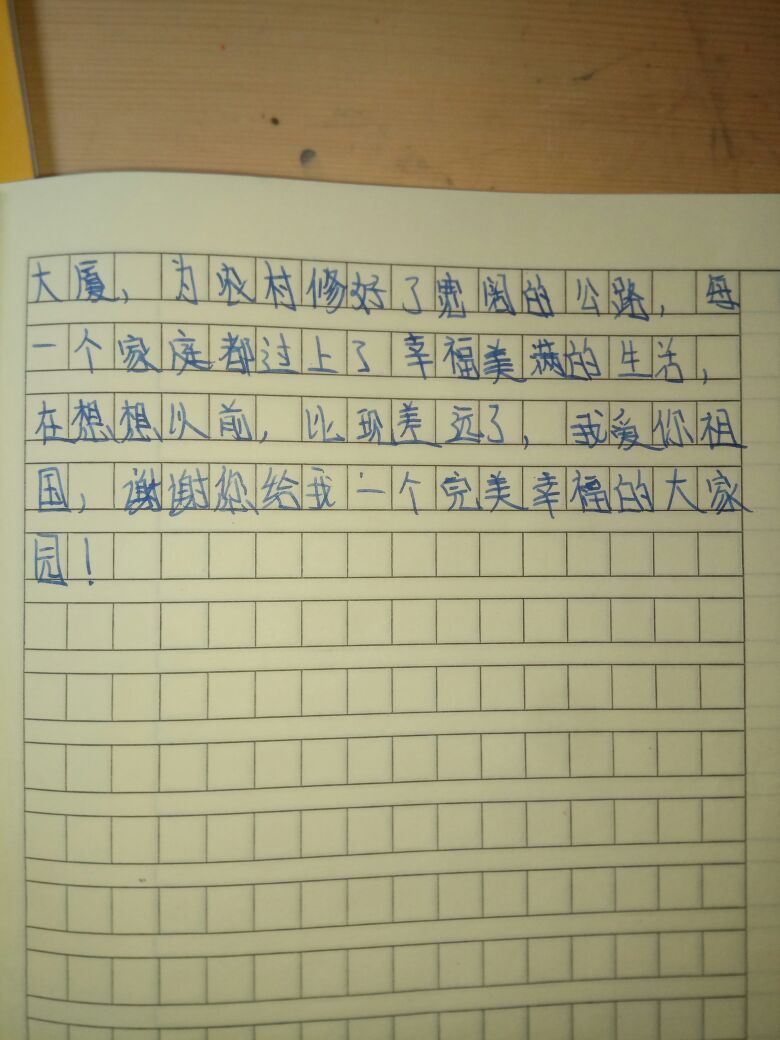 大厦，为农村修好了宽阔的公路，每
一个家庭都过上了幸福美满的生活，
在想想以前，比现差远了，我爱你祖
国，谢谢您给我一个完美幸福的大家
园！